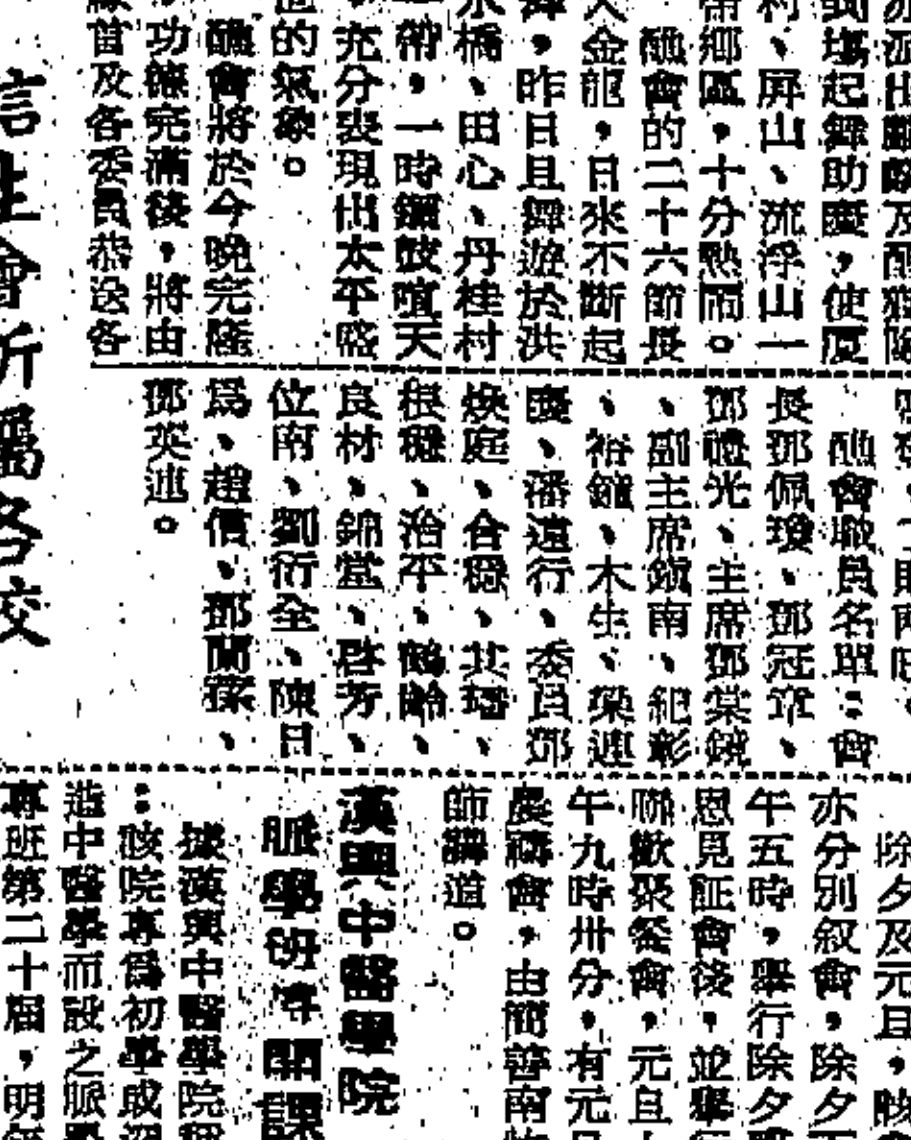 到塲起舞助慶，使厦
村、屏山、流浮山一
帶鄉區，十分熱鬧。
醮會的二十六節長
大金龍，日來不斷起
舞，昨日且舞遊於洪
水橋、田心、丹桂村
一帶，一時鑼鼓喧天
，充分表現出太平盛
世的氣象。
醮會將於今晚完隆
功德完滿後，將由
緣首及各委員恭送各
醮會職員名單：會
長鄧佩瓊、鄧冠章、
鄧禮光、主席鄧棠鏡
、副主席鎮南、紀彰
、裕鏞、木生、梁連
慶、潘遠行、委員鄧
煥庭、合穩、其璠、
根穩、治平、鶴齡、
良材、錦堂、啓芳、
位南、劉衍全、陳日
爲、趙信、鄧蘭蓀、
鄧英連。
除夕及元旦，
亦分別叙會，除夕
午五時，舉行除夕
恩見証會後，並舉
聯歡聚餐會，元旦
午九時卅分，有元
慶禱會，由簡善南
師講道。
漢興中醫學院
脈學班專開課
據漢興中醫學院
：該院專爲初學或
造中醫學而設之脈
專班第二十屆，明